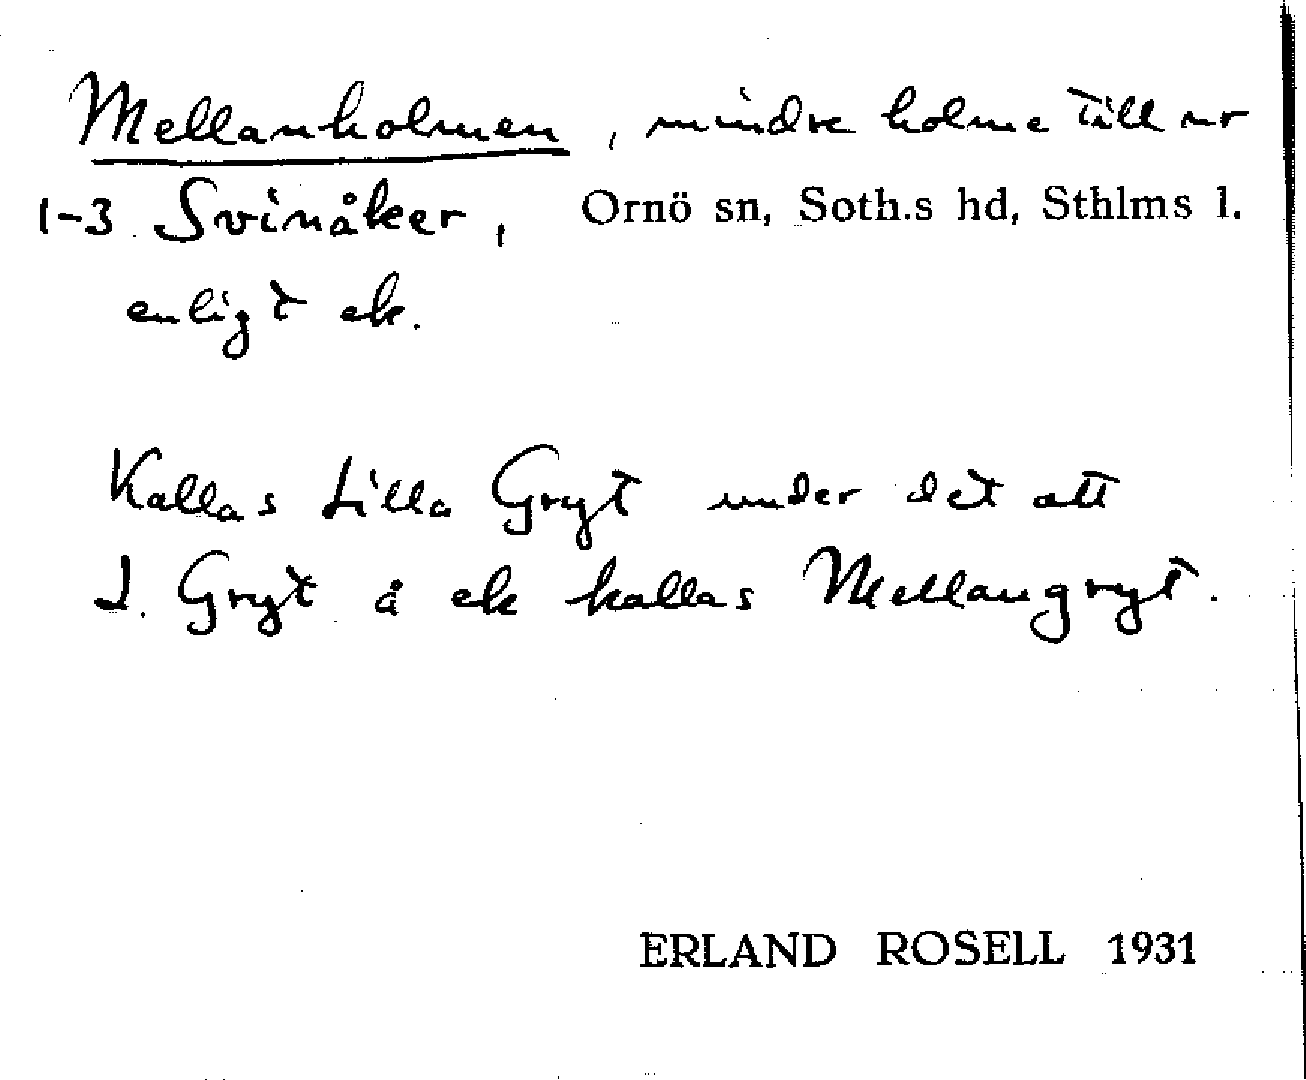 Mellanholmen, mindre holme till nr
1-3 Svinåker, Ornö sn, Soth.s hd, Sthlms l.
enligt ek.
Kallas Lilla Gryt under det att
L. Gryt å ek kallas Mellangryt.
ERLAND ROSELL 1931